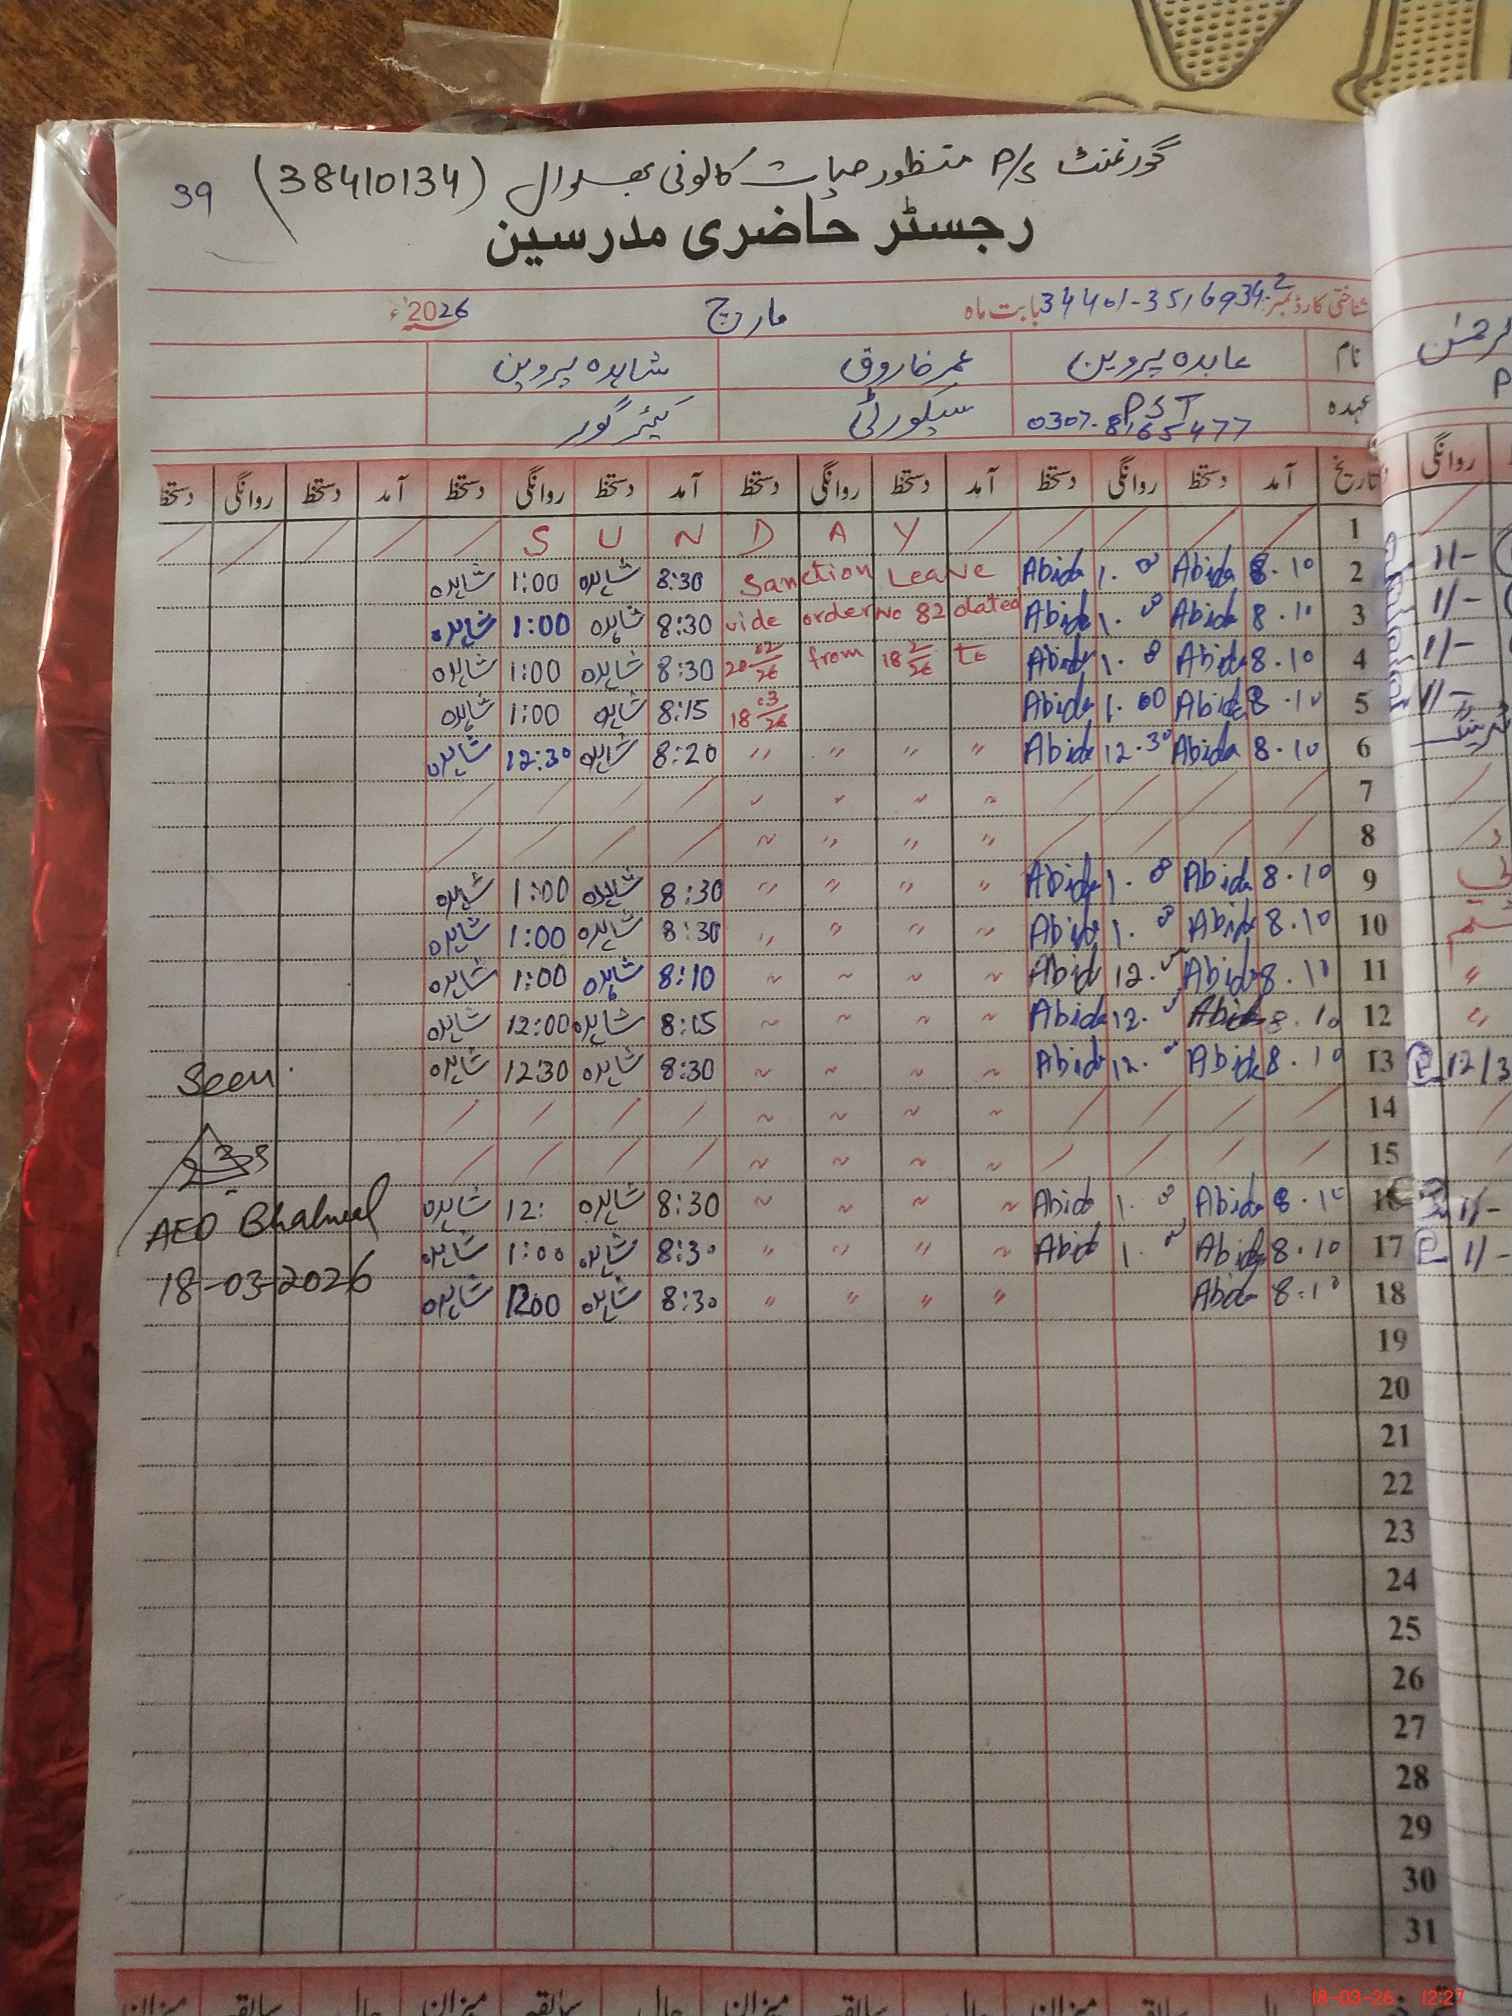 گورنمنٹ P/S منظور حیات کالونی بھلوال (38410134) 39
رجسٹر حاضری مدرسین
شناختی کارڈ نمبر 34401-3516934-2 بابت ماہ مارچ 2026ء
نام عابدہ پروین عمر فاروق شاہدہ پروین
عہدہ PST 0307-8165477 سیکورٹی کیئر گور
تاریخ آمد دستخط روانگی دستخط آمد دستخط روانگی دستخط آمد دستخط روانگی دستخط آمد دستخط روانگی دستخط
1 S U N D A Y
2 8.10 Abida 1.00 Abida Sanction Leave 8:30 شاہدہ 1:00 شاہدہ
3 8.10 Abida 1.00 Abida vide order No 82 dated 8:30 شاہدہ 1:00 شاہدہ
4 8.10 Abida 1.00 Abida 20 02/26 from 18 2/26 to 8:30 شاہدہ 1:00 شاہدہ
5 8.10 Abida 1.00 Abida 18 03/26 8:15 شاہدہ 1:00 شاہدہ
6 8.10 Abida 12.30 Abida " " " " 8:20 شاہدہ 12:30 شاہدہ
7 " " " "
8 " " " "
9 8.10 Abida 1.00 Abida " " " " 8:30 شاہدہ 1:00 شاہدہ
10 8.10 Abida 1.00 Abida " " " " 8:30 شاہدہ 1:00 شاہدہ
11 8.10 Abida Abid " " " " 8:10 شاہدہ 1:00 شاہدہ
12 8.10 Abida Abida " " " " 8:15 شاہدہ 12:00 شاہدہ
13 8.10 Abida Abida " " " " 8:30 شاہدہ 12:30 شاہدہ
Seen
14 " " " "
15 " " " "
16 8.10 Abida 1.00 Abida " " " " 8:30 شاہدہ 12: شاہدہ
AEO Bhalwal
17 8.10 Abida Abid " " " " 8:30 شاہدہ 1:00 شاہدہ
18-03-2026
18 8:10 Abida " " " " 8:30 شاہدہ 12:00 شاہدہ
19
20
21
22
23
24
25
26
27
28
29
30
31
میزان سابقہ حال میزان سابقہ حال میزان سابقہ حال میزان سابقہ حال
18-03-26 12:27